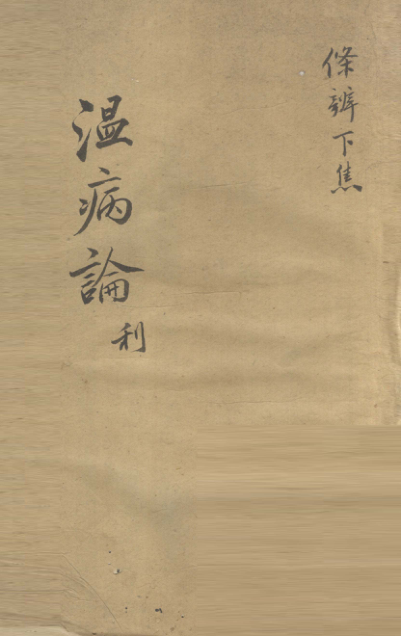 條辨下焦
温病論
利